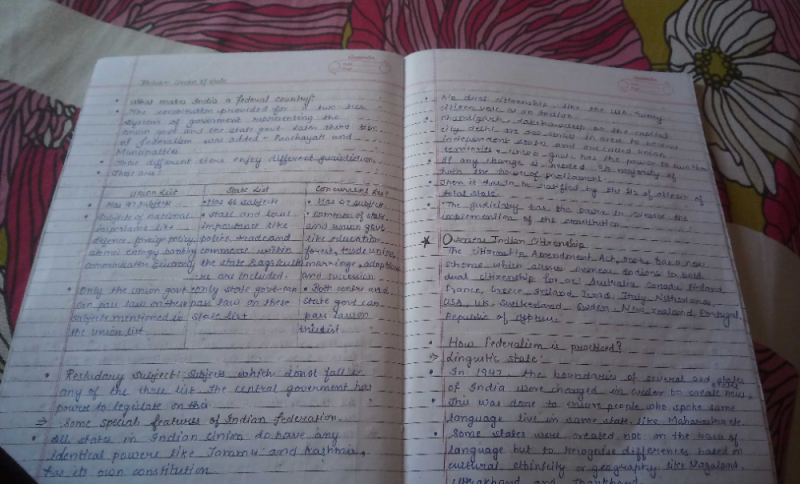 What makes India a federal country?
The constitution provided for a two tier
system of government representing the
union govt and the state govt. Later third tier
of federalism was added - Panchayats and
Municipalities
These different tiers enjoy different jurisdiction
There are:
Union List
Has 97 subjects
Subjects of national
importance like
defence, foreign policy
atomic energy, banking
communication currency
Only the union govt
can pass laws on the
subjects mentioned in
the union list
State List
Has 66 subjects
State and local
importance like
police, trade and
commerce within
the state
are included.
Only state govt can
pass law on these
state list
Concurrent List
Has 47 subjects
common of state
and union govt
like education
forest, trade union,
marriage, adoption
and succession
Both centre and
state govt can
pass laws on
this list
Residuary Subject: Subjects which donot fall in
any of the three list. The central government has
power to legislate on this
⇒ Some special features of Indian Federation.
All state in Indian Union do have any
identical powers like Jammu and Kashmir,
has its own constitution
No dual citizenship, like the US. Every
citizen is an Indian
Chandigarh, or the capital
city Delhi are
independent state and are called union
territories - union govt has the power to run them
If any change is needed majority of
both the house of parliament
Then it has to ratified by the of
total state
The judiciary has the power to the
implementation of the constitution
★ Overseas Indian Citizenship
The citizenship Amendment Act,
dual citizenship for Australia Canada, Finland
France, Greece, Ireland, Israel, Italy, Netherlands
USA, UK, Switzerland, Sweden, New Zealand, Portugal,
Republic of Cyprus.
How Federalism is practised?
⇒ Linguistic state:
In 1947, the boundaries of several old states
of India were changed in order to create new
This was done to ensure people who spoke same
language live in same state like Maharashtra etc
Some states were created not on the basis of
language but to recognise differences based on
cultural ethnicity or geography like Nagaland,
Uttrakhand and Jharkhand